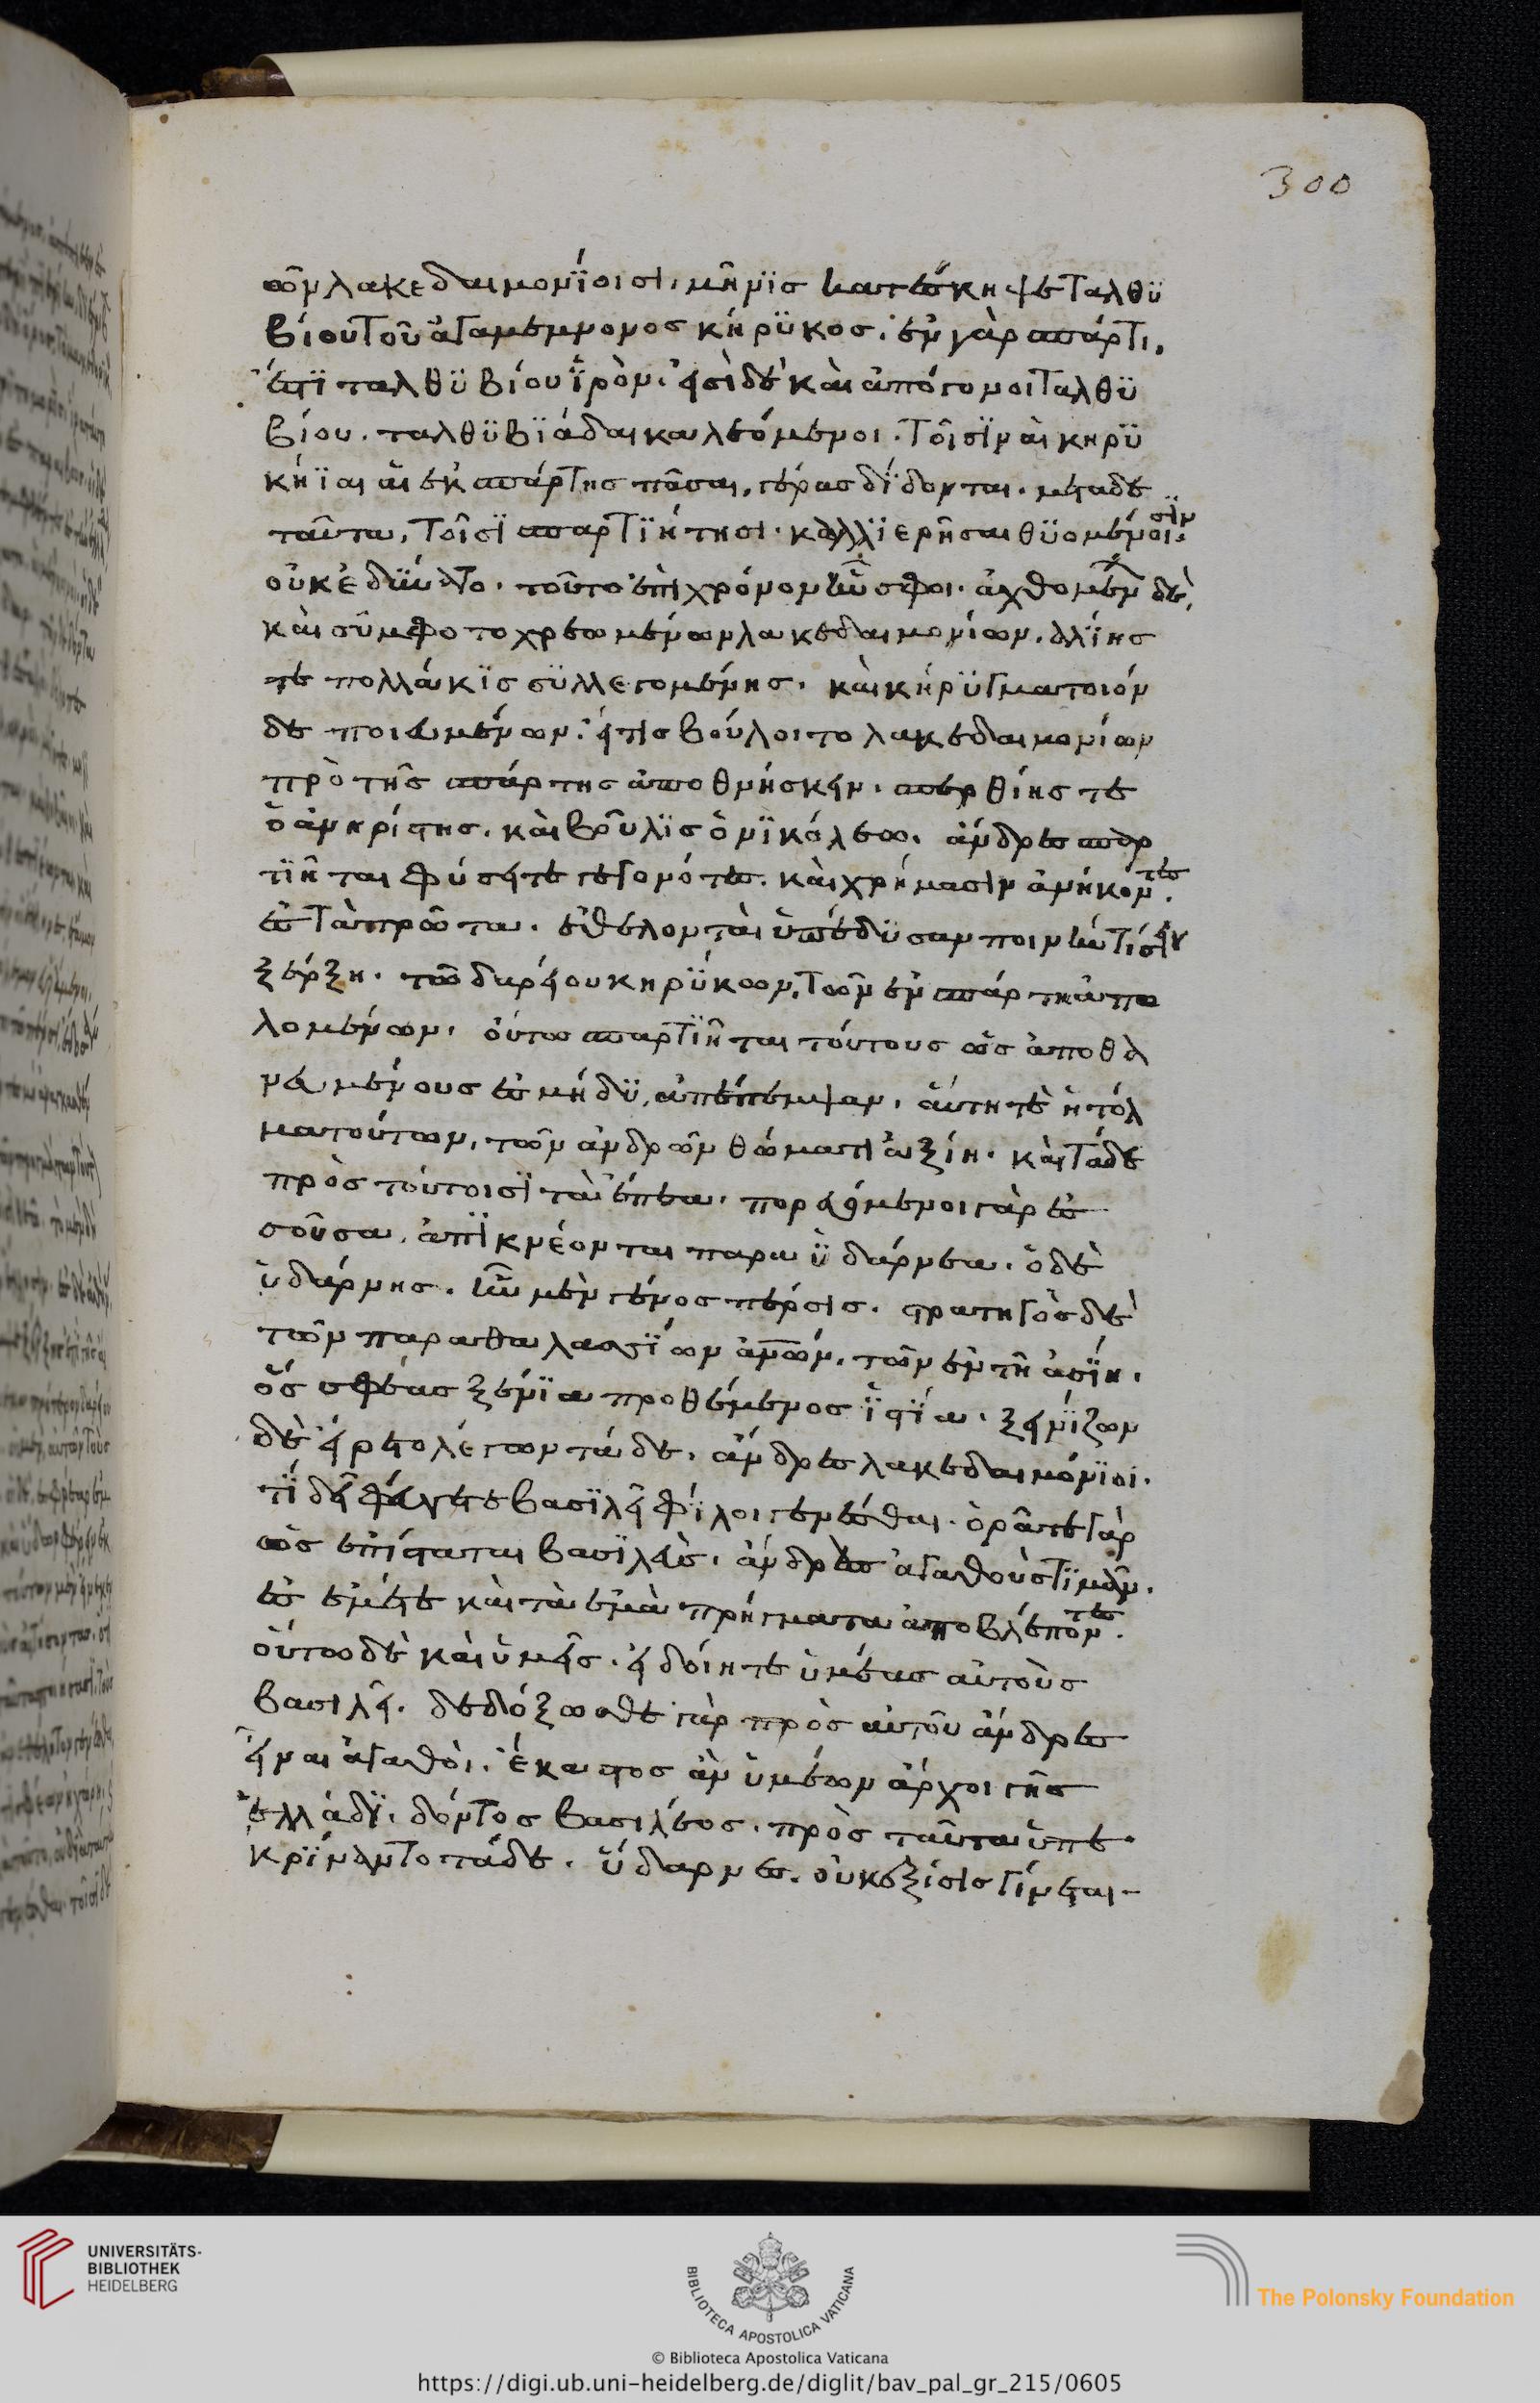 300
ὦν λακεδαιμονίοισι. μῆνϊς κατέσκηψε ταλθϋ
βίου τοῦ ἀγαμέμνονος κήρϋκος. ἐν γὰρ σπάρτι,
ἐστὶ ταλθϋβίου ἱρὸν. εἰσὶ δὲ καὶ ἀπόγονοι ταλθϋ
βίου. ταλθϋβϊάδαι καλεόμενοι. τοῖσϊν αἱ κηρϋ
κήϊαι αἱ ἐκ σπάρτης πᾶσαι, γέρας δίδονται. μετὰ δὲ
ταῦτα, τοῖσϊ σπαρτϊήτησι. καλλϊερῆσαι θϋομένοισϊν.
οὐκ ἐδύνατο. τοῦτο ἐπὶ χρόνον ἦν σφοι. ἀχθομένων δὲ,
καὶ συμφοτο χρεωμένων λακεδαιμονίων. ἁλίης
τε πολλάκϊς συλλεγομένης. καὶ κήρϋγμα τοιόν
δε ποιευμένων. εἴ τις βούλοιτο λακεδαιμονίων
πρὸ τῆς σπάρτης ἀποθνήσκειν. σπερθίης τε
ὁ ἀνηρίστης. καὶ βοῦλϊς ὁ νϊκόλεω. ἄνδρες σπαρ
τϊῆται φύσει τε γεγονότες. καὶ χρήμασιν ἀνήκοντες.
ἐς τὰ πρῶτα. ἐθελονταὶ ὑπέδϋσαν ποινὴν τίσειν
ξέρξη. τῶ δαρείου κηρϋκων, τῶν ἐν σπάρτη ἀπο
λομένων. οὕτω σπαρτϊῆται τούτους ὡς ἀποθα
νευμένους ἐς μήδϋ, ἀπέπεμψαν. αὕτη τε ἡ τόλ
μα τούτων, τῶν ἀνδρῶν θώματι ἀξίη. καὶ τάδε
πρὸς τούτοισϊ τὰ ἔπεα. πορευόμενοι γὰρ ἐς
σοῦσα. ἀπϊκνέονται παρα ϋδάρνεα. ὁ δὲ
ὑδάρνης. ἦν μὲν γένος πέρσις. στρατηγὸς δὲ
τῶν παραθαλασσίων ἀνων, τῶν ἐν τῆ ἀσϊη.
ὅς σφεας ξένϊα προθέμενος ἱστία. ξεινίζων
δὲ εἴρετο λέγων τάδε. ἄνδρες λακεδαιμόνϊοι.
τί δὴ φεύγετε βασϊλεῖ φίλοι γενέσθαι. ὁρᾶτε γὰρ
ὡς ἐπίσταται βασϊλεὺς. ἄνδρας ἀγαθοὺς τϊμᾶν.
ἐς ἐμέ τε καὶ τὰ ἐμὰ πρήγματα ἀποβλέποντες.
οὕτω δὲ καὶ ὑμεῖς. εἰ δοίητε ὑμέας αὐτοὺς
βασιλεῖ. δεδόξωσθε γὰρ πρὸς αὐτοῦ ἄνδρες
εἶναι ἀγαθοὶ. ἕκαστος ἂν ὑμέων ἄρχοι γῆς
ἑλλάδϊ. δόντος βασιλέος. πρὸς ταῦτα ὑπε
κρίναντο τάδε. ὕδαρνες. οὐκ ἐξίσις γίνεται
UNIVERSITÄTS-
BIBLIOTHEK
HEIDELBERG
BIBLIOTECA APOSTOLICA VATICANA
The Polonsky Foundation
© Biblioteca Apostolica Vaticana
https://digi.ub.uni-heidelberg.de/diglit/bav_pal_gr_215/0605